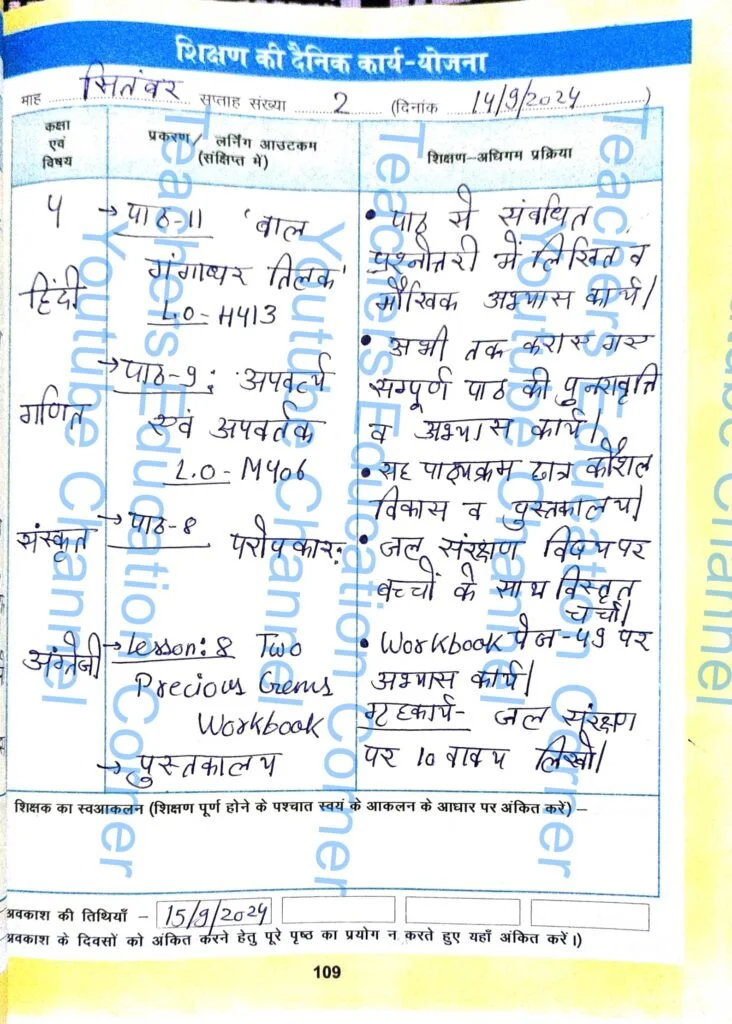 शिक्षण की दैनिक कार्य-योजना
माह सितंबर सप्ताह संख्या 2 (दिनांक 14/9/2024)
कक्षा एवं विषय
प्रकरण/ लर्निंग आउटकम (संक्षिप्त में)
शिक्षण-अधिगम प्रक्रिया
5
हिंदी
→ पाठ-11 'बाल
गंगाधर तिलक'
L.O-H413
गणित
→ पाठ-9: अपवर्त्य
एवं अपवर्तक
L.O-M406
संस्कृत
→ पाठ-8
परोपकार:
अंग्रेजी
→ Lesson: 8 Two
Precious Gems
Workbook
→ पुस्तकालय
• पाठ से संबधित
प्रश्नोत्तरी में लिखित व
मौखिक अभ्यास कार्य।
• अभी तक कराए गए
सम्पूर्ण पाठ की पुनरावृत्ति
व अभ्यास कार्य।
• सह पाठ्यक्रम छात्र कौशल
विकास व पुस्तकालय।
• जल संरक्षण विषय पर
बच्चों के साथ विस्तृत
चर्चा।
• Workbook पेज-49 पर
अभ्यास कार्य।
गृहकार्य- जल संरक्षण
पर 10 वाक्य लिखो।
शिक्षक का स्वआकलन (शिक्षण पूर्ण होने के पश्चात स्वयं के आकलन के आधार पर अंकित करें) –
अवकाश की तिथियाँ – 15/9/2024
अवकाश के दिवसों को अंकित करने हेतु पूरे पृष्ठ का प्रयोग न करते हुए यहाँ अंकित करें।)
109
Teachers Education Corner
Youtube Channel
Teachers Education Corner
Youtube Channel
Teachers Education Corner
Youtube Channel